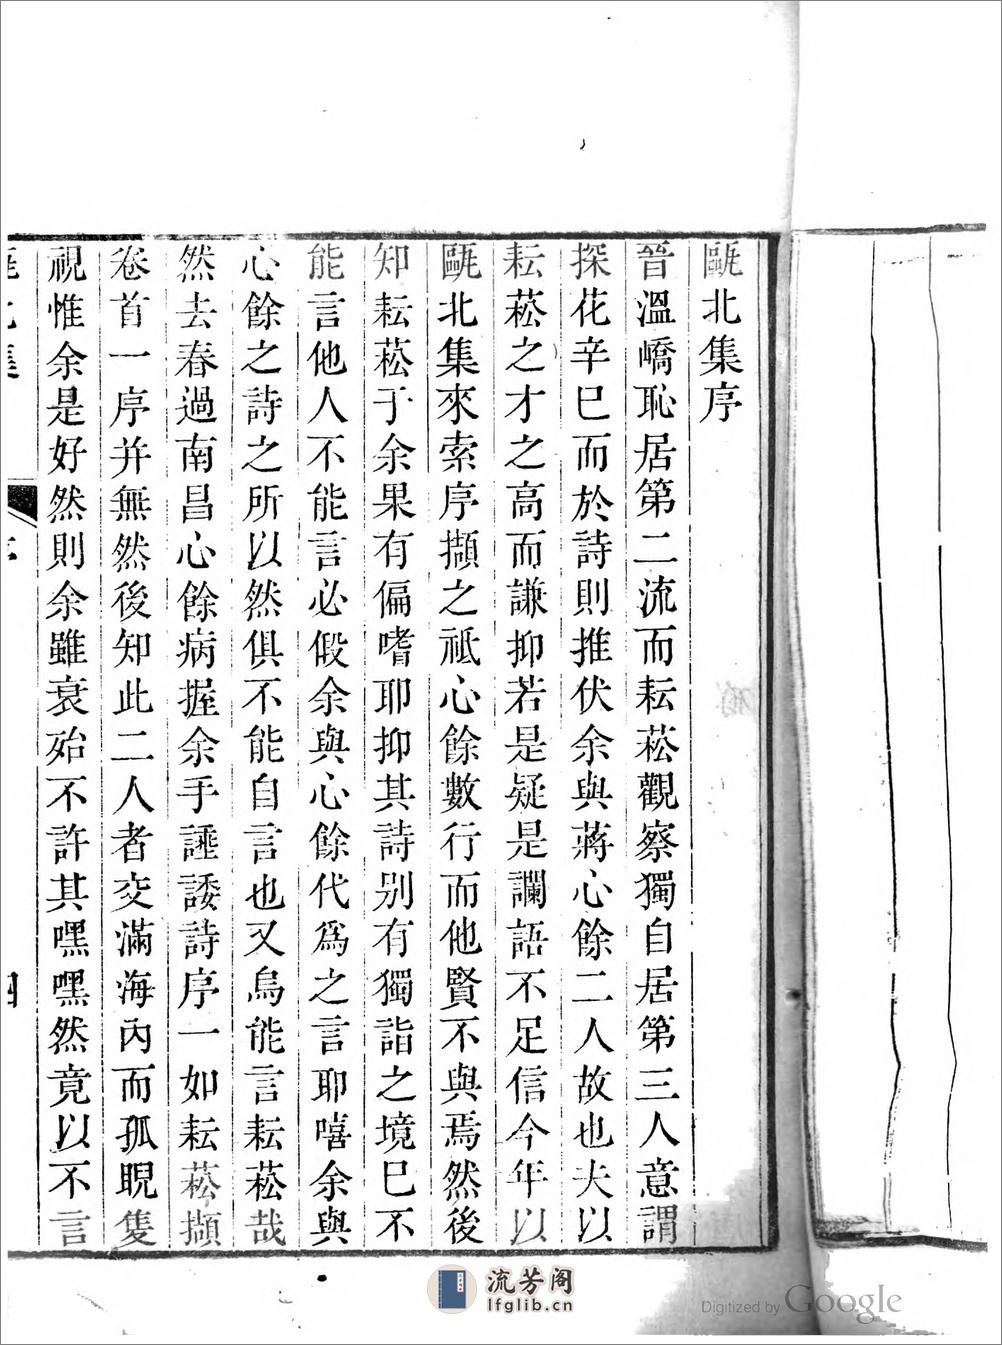 甌北集序
晉溫嶠恥居第二流而耘菘觀察獨自居第三人意謂
探花辛巳而於詩則推伏余與蔣心餘二人故也夫以
耘菘之才之高而謙抑若是疑是讕語不足信今年以
甌北集來索序擷之祗心餘數行而他賢不與焉然後
知耘菘于余果有偏嗜耶抑其詩别有獨詣之境巳不
能言他人不能言必假余與心餘代爲之言耶嘻余與
心餘之詩之所以然俱不能自言也又烏能言耘菘哉
然去春過南昌心餘病握余手諈諉詩序一如耘菘擷
卷首一序并無然後知此二人者交滿海內而孤睨隻
視惟余是好然則余雖衰殆不許其嘿嘿然竟以不言
流芳阁
lfglib.cn
Digitized by Google